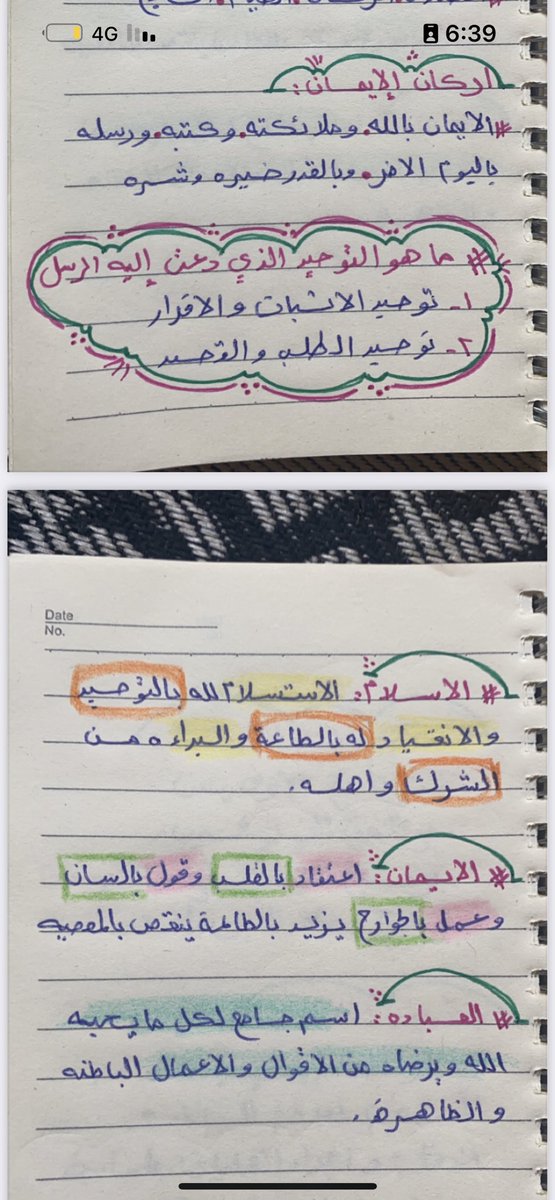 4G
6:39
اركان الإيمان:
#الايمان بالله.وملائكته.وكتبه.ورسله
باليوم الاخر.وبالقدر خيره وشره
# ما هو التوحيد الذي دعت إليه الرسل
١- توحيد الاثبات والاقرار
٢- توحيد الطلب والقصد
Date
No.
# الاسلام: الاستسلام لله بالتوحيد
والانقياد له بالطاعة والبراءه من
الشرك واهله.
# الايمان: اعتقاد بالقلب وقول بالسان
وعمل بالجوارح يزيد بالطاعة ينقص بالمعصيه
# العباده: اسم جامع لكل ما يحبه
الله ويرضاه من الاقوال والاعمال الباطنه
والظاهرة.